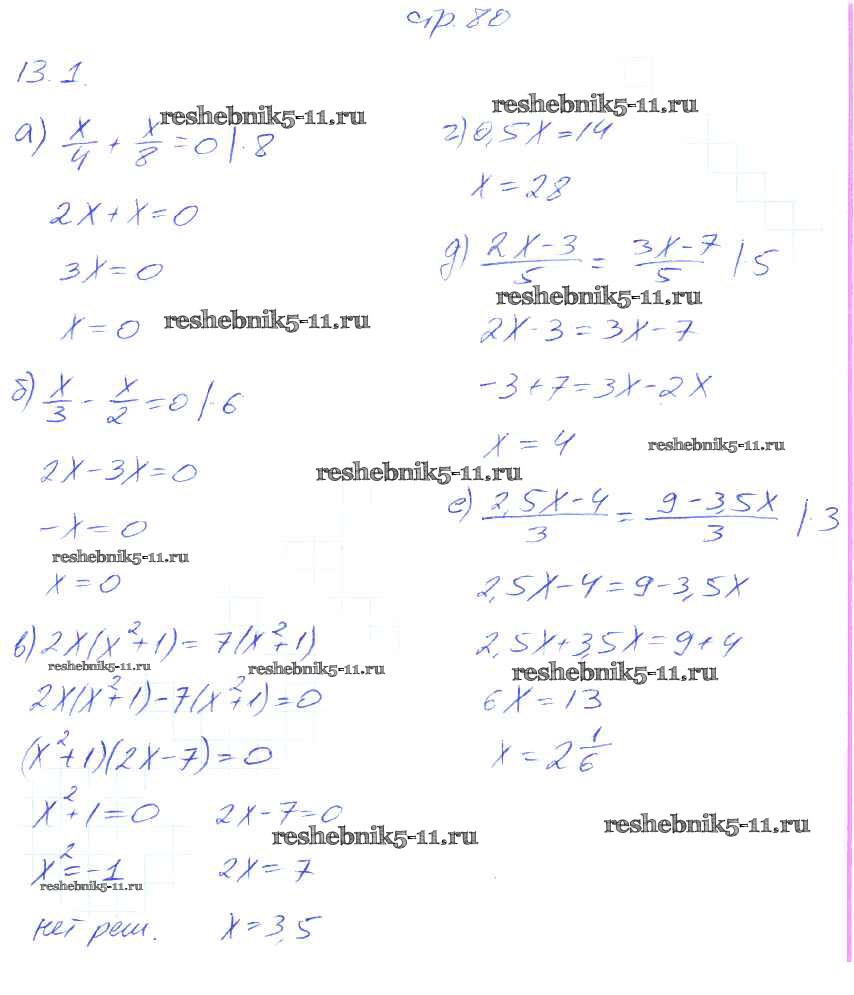 стр. 80
13.1.
reshebnik5-11.ru
а) x/4 + x/8 = 0 |·8
2x + x = 0
3x = 0
x = 0 reshebnik5-11.ru
б) x/3 - x/2 = 0 |·6
2x - 3x = 0
reshebnik5-11.ru
-x = 0
reshebnik5-11.ru
x = 0
в) 2x(x²+1) = 7(x²+1)
reshebnik5-11.ru reshebnik5-11.ru
2x(x²+1) - 7(x²+1) = 0
(x²+1)(2x-7) = 0
x²+1 = 0 2x-7 = 0
reshebnik5-11.ru
x² = -1 2x = 7
reshebnik5-11.ru
нет реш. x = 3,5
reshebnik5-11.ru
г) 0,5x = 14
x = 28
д) (2x-3)/5 = (3x-7)/5 |·5
reshebnik5-11.ru
2x-3 = 3x-7
-3+7 = 3x-2x
x = 4 reshebnik5-11.ru
е) (2,5x-4)/3 = (9-3,5x)/3 |·3
2,5x-4 = 9-3,5x
2,5x+3,5x = 9+4
reshebnik5-11.ru
6x = 13
x = 2 1/6
reshebnik5-11.ru